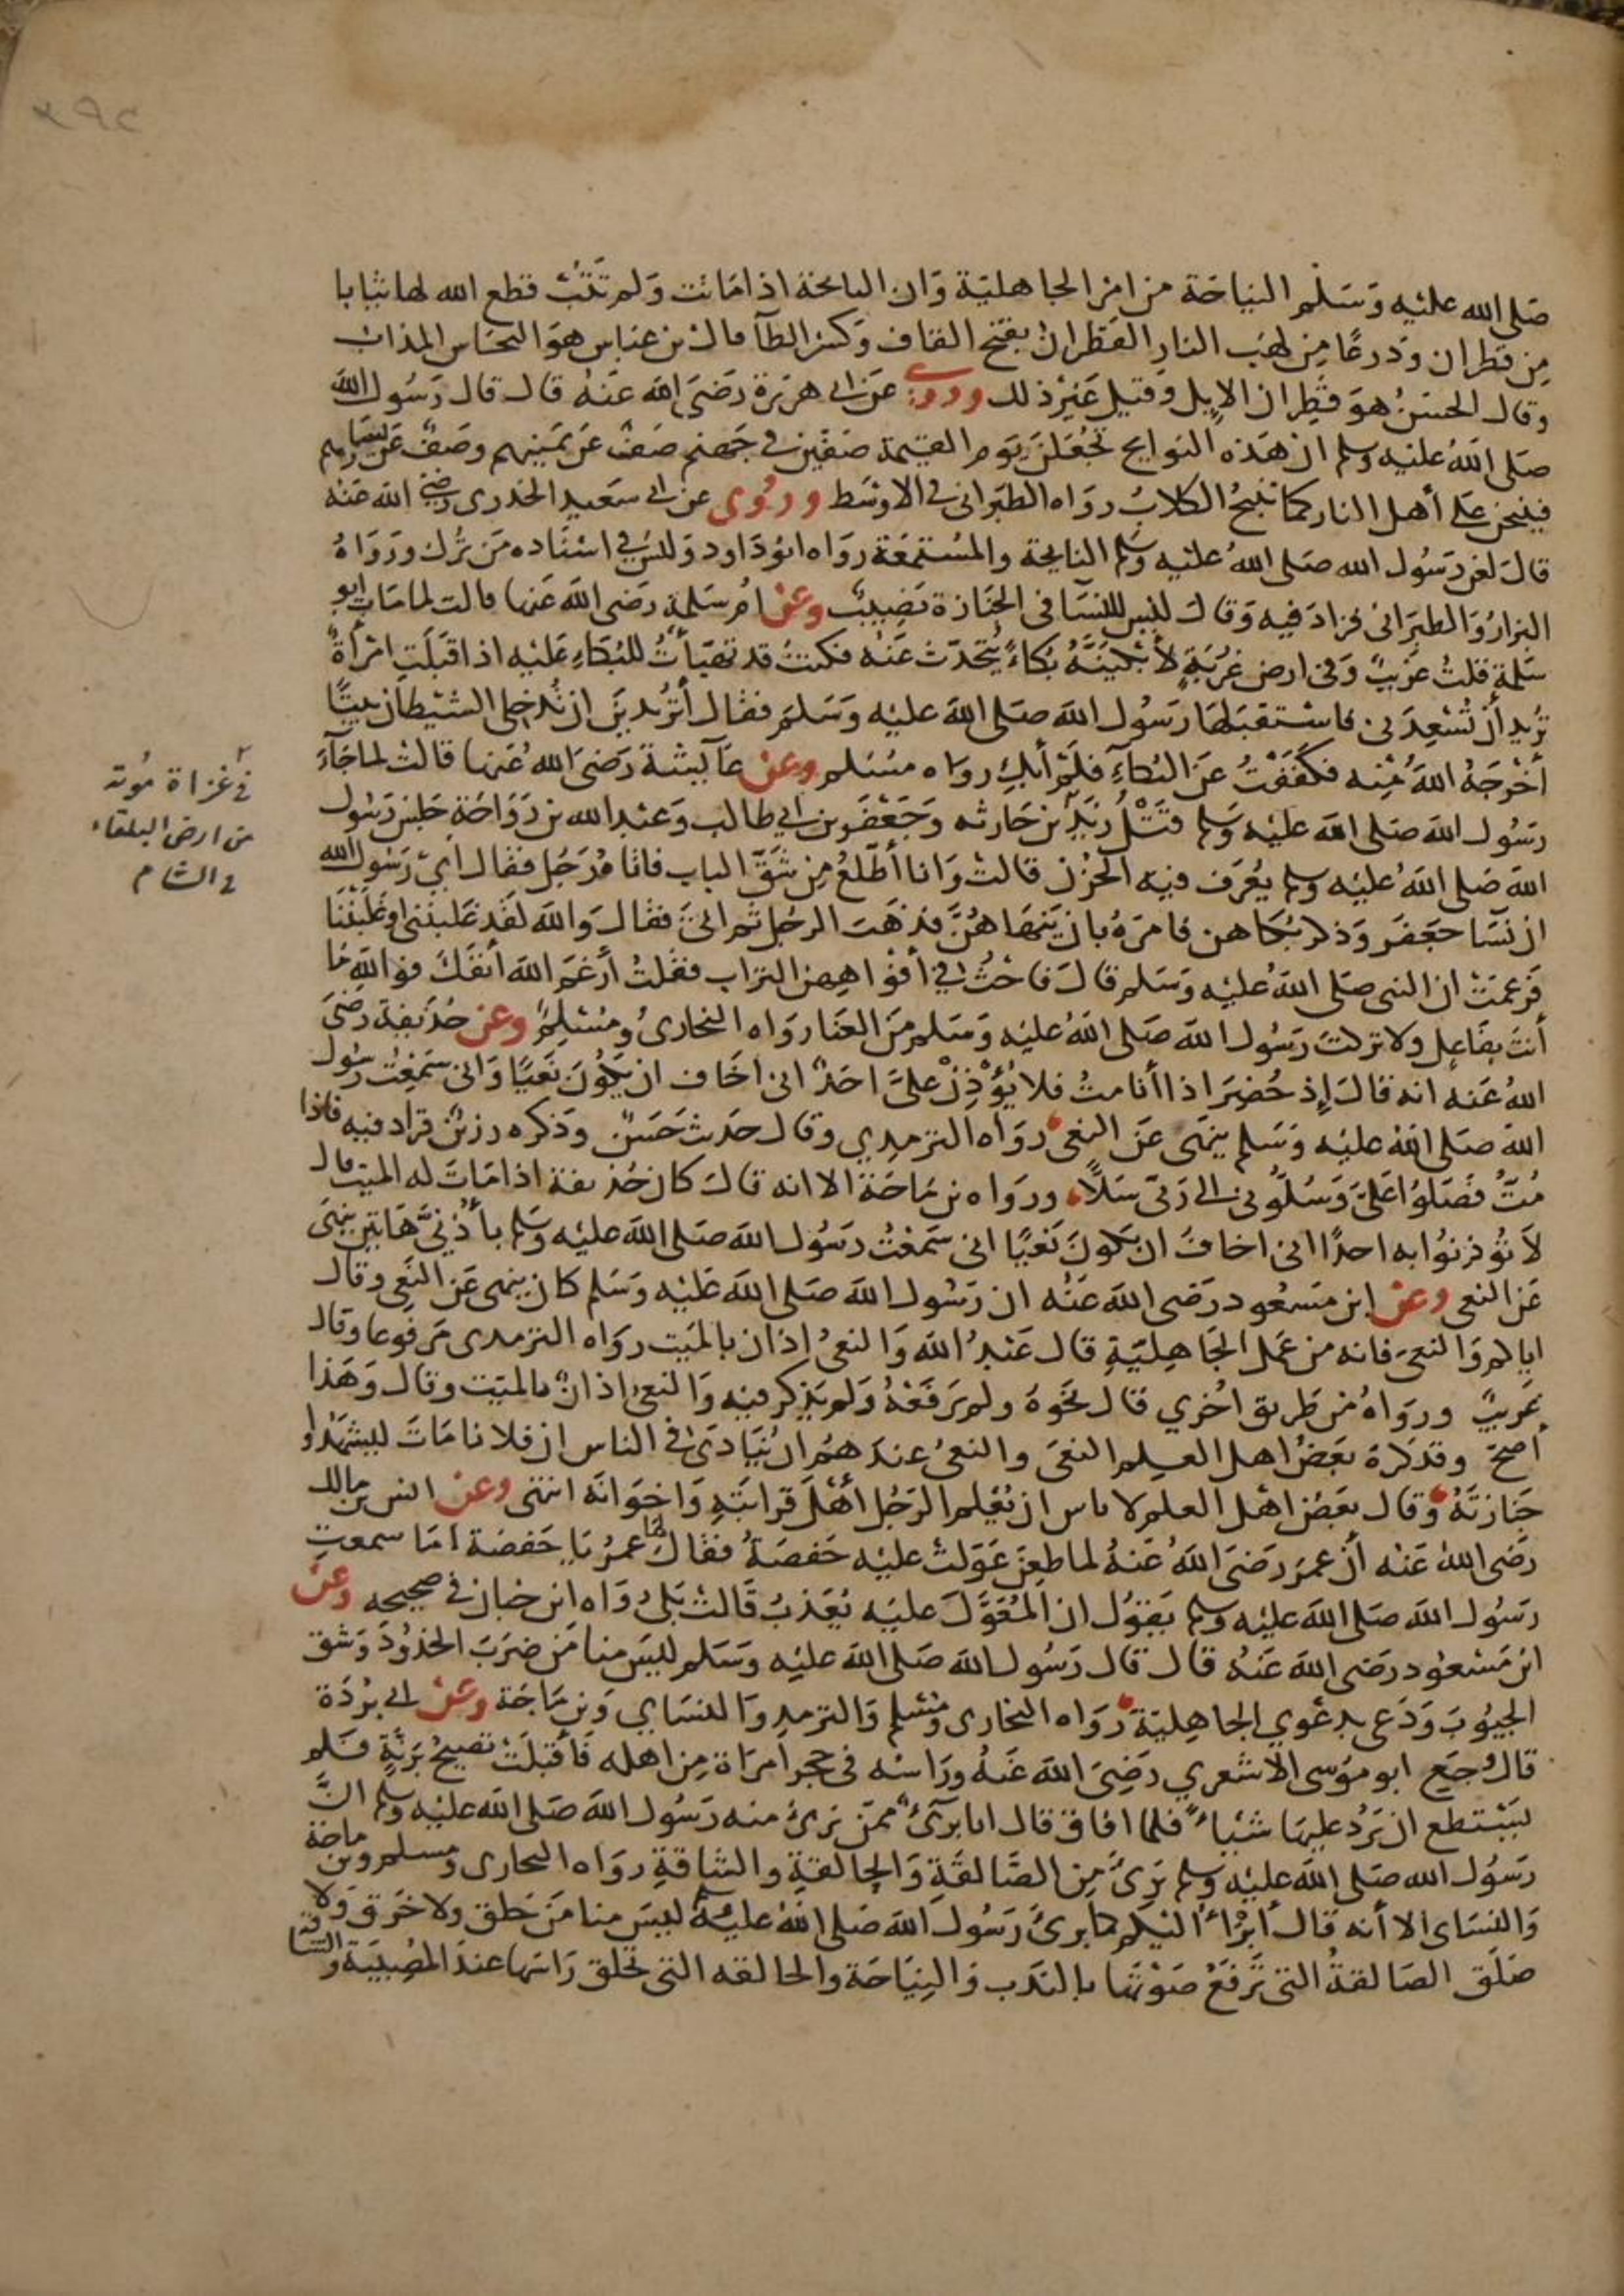 ٣٩٢
صَلى الله عليْه وَسَلم النياحَة من امرِ الجاهليّة وَان النائحة اذا مَاتت وَلم تَتُبْ قطع الله لها ثيابا
مِن قطران ودَرعًا مِن لهَب النارِ القَطران بفتح القاف وَكسر الطآ قال بن عباس هوَ النحَاس المذاب
وقال الحسَنُ هوَ قطِران الإبل وقيل غيْر ذلك وروى عَن ابى هريرة رَضيَ الله عَنهُ قال قال رَسُول الله
صَلى اللهُ عليْه وسلم ان هَذه النوايح تجُعَلنَ يَوم القيمة صَفَّيْن فى جَهنم صَفٌ عَن يَمينهم وصَفٌ عَن يسَارهم
فينبحن عَلى أهل النار كما تنبحُ الكلابُ روَاه الطبَرانى فى الاوسَط وروُى عن ابى سَعيد الخدرى رضى الله عَنه
قالَ لعَن رَسُول الله صَلى اللهُ عليْه وسَلم النايحة والمسْتمعَة روَاه ابوُدَاود وَليْسَ فى اسنَاده مَن تُرك ورَوَاهُ
البزارُ وَالطبَرَانى فزادَ فيه وَقالَ ليس للنسَا فى الجَنازة نصِيبٌ وعن امُ سَلمة رَضى الله عَنها قالت لما مَات ابو
سَلمة قلتُ غريبٌ وَفى ارض غُربَةٍ لأبْكينَّهُ بُكاءً يُتحَدّث عَنْه فكنتُ قد تهَيَّأتُ للبُكاءِ عَليْه اذا قبَلَتِ امْرأةٌ
تُريد أن تُسْعِدَنى فاسْتقبَلهَا رَسُول الله صَلى الله عليْه وَسَلم فقال أتُريدينَ ان تُدخلِى الشيْطان بيتًا
أخْرَجَهُ اللهُ مِنْه فكفَفْتُ عَن البُكآءِ فلَمْ أبْكِ روَاه مسْلم وعن عَآيشَة رَضىَ اللهُ عَنها قالتْ لما جَآءَ
رَسُول الله صَلى الله عليْه وَسلم قتْلُ زيْد بْن حَارثه وجَعْفَر بن ابى طالب وَعَبْد الله بن رَوَاحَة جَلسَ رَسُول
الله صَلى اللهُ عليْه وسلم يُعْرَف فيْه الحُزْن قالتْ وَانا أطَّلعُ مِن شَقّ الباب فاتاهُ رَجُل فقال اىْ رَسُول الله
ان نسَا جَعفَر وَذكر بُكاهن فامرَهُ بان يَنهَاهُنَّ فذهَبَ الرجُل ثم اتىَ فقالَ وَالله لقَد غلبْننى او غَلبْننا
فزعمَتْ ان النبى صَلى اللهُ عليْه وَسَلم قالَ فاحْثُ فى أفْوَاهِهِن التراب فقلتُ أرْغَم الله أنفَكَ فوَاللهِ مَا
أنتَ بفَاعِل ولا تركتَ رَسُول الله صَلى اللهُ عليْه وَسَلم مِنَ العَنا روَاه البخارىُ ومُسْلِم وعن حُذيفة رَضىَ
اللهُ عَنه انه قالَ إذ حُضِرَ اذا أنا متُّ فلا يُؤْذِنْ عَلىَّ احَدٌ انى اخَاف ان يَكُونَ نَعْيًا وَانى سَمِعْتُ رسُول
الله صَلى اللهُ عليْه وَسَلم ينهَى عَن النعى روَاه الترمِدِي وقال حَديث حَسَنٌ وَذكره رزينٌ فزاد فيه فاذا
مُتُّ فَصَلوُا عَلىَّ وَسُلوُنى الى رَبى سَلاًّ ورَوَاه بن مَاجَة الا انه قالَ كان حُذيفة اذا مَاتَ له الميت قال
لاَ تؤْذنوُا به احدًا انى اخافُ ان يَكونَ نَعْيًا انى سَمعْتُ رَسُول الله صَلى الله عليْه وَسَلم بأُذُنىَّ هَاتين ينهَى
عَن النعى وعن ابن مَسْعُود رَضى الله عَنْه ان رَسُول الله صَلى الله عَليْه وَسَلم كان ينهى عَن النعى وقال
اياكم وَالنعىَ فانه من عَمَل الجَاهِليّةِ قال عَبدُ الله وَالنعىُ اذان بالميت روَاه الترمدى مَرفوعا وقال
غريبٌ وروَاهُ من طَريق اخْري قال نحْوَهُ ولم يَرفعْهُ وَلم يَذكر فيه وَالنعىُ اذانٌ بالميّت وقال وَهَذا
أصحّ وقد كرَهَ بعَضُ اهل العلم النعىَ والنعىُ عندَهُم ان يُنادَى فى الناس ان فلانا مَاتَ ليشْهَدُوا
جَنازَتَهُ وقال بعَضُ اهْل العلم لا باس ان يُعْلم الرَجُل أهْلَ قرابَتِهِ وَاخوَانَه انتهى وعن انس بن مالك
رَضى اللهُ عَنْه أنَّ عمَر رَضىَ اللهُ عَنهُ لما طعِنَ عَوَلتْ عليْه حَفصَةُ فقال لها عمرُ يا حَفصَة امَا سمعتِ
رسُول الله صَلى الله عليْه وَسلم يَقوُل ان المُعَوَّلَ عليْه يُعَذبُ قَالتْ بَلى روَاه ابن حبان فى صحيحه وعن
ابن مَسْعوُد رَضى الله عَنهُ قال قال رَسُول الله صَلى الله عليْه وَسَلم ليْسَ منا مَن ضرَبَ الخدُودَ وَشق
الجيُوبَ وَدَعى بدعْوي الجاهِليّة رَوَاه البخارى ومسْلم وَالترمدى وَالنسَاي وَبن مَاجَة وعن ابى بُرْدَة
قالَ وُجعَ ابو مُوسى الاشعري رَضِىَ الله عَنهُ ورَاسُه فى حجر امرَاة مِن اهله فَأقبَلَتْ تصيحُ برَنةٍ فَلم
يَسْتطع ان يَرُدّ عليهَا شيْئًا فلما افاق قال انا برىٌ ممّن برىٌ منه رَسُول الله صَلى الله عليْه وسلم انَّ
رَسُول الله صَلى الله عليْه وسلم برىٌ مِن الصَّالقَةِ وَالحالقةِ والشاقةِ روَاه البخارى ومسلم وبن ماجة
وَالنسَاى الا أنه قال أبْرَأُ اليكم كما برىَ رَسُول الله صَلى اللهُ عليْه وسلم ليْسَ منا مَن حَلق ولا خَرَق وَلا
صَلَق الصَالقةُ التى تَرفَعُ صَوْتهَا بالندَب وَالنِيَاحَة والحالقه التى تحلق رَاسَهَا عندَ المصيبَة والشاقة
فى غزاة مُوتة
من ارض البلقاء
فى الشام